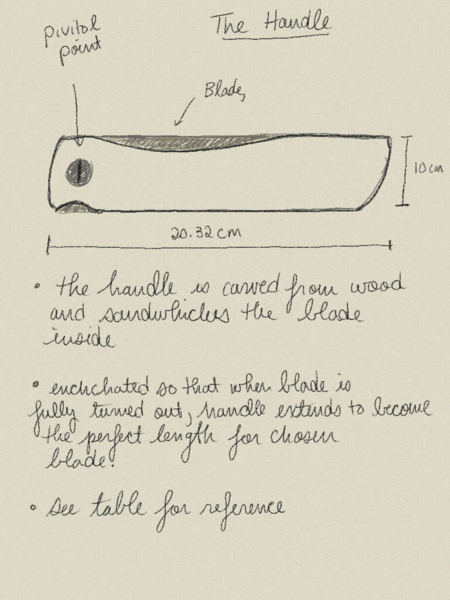 The Handle
pivital
point
Blade,
10 cm
20.32 cm
• the handle is carved from wood
and sandwhiches the blade
inside
• enchchated so that when blade is
fully turned out, handle extends to become
the perfect length for chosen
blade.
• see table for reference